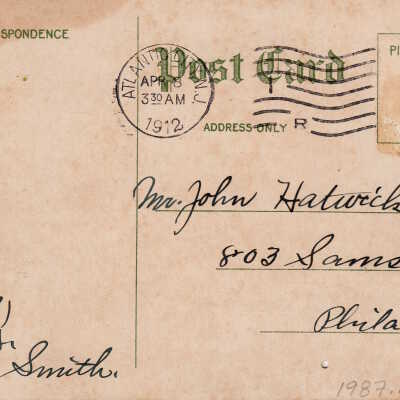 SPONDENCE
Post Card
PI
ATLANTIC N.J.
APR 8
3 30 AM
1912
ADDRESS ONLY
R
Mr. John Hatwick
803 Sams
Phila
Smith.
1987.